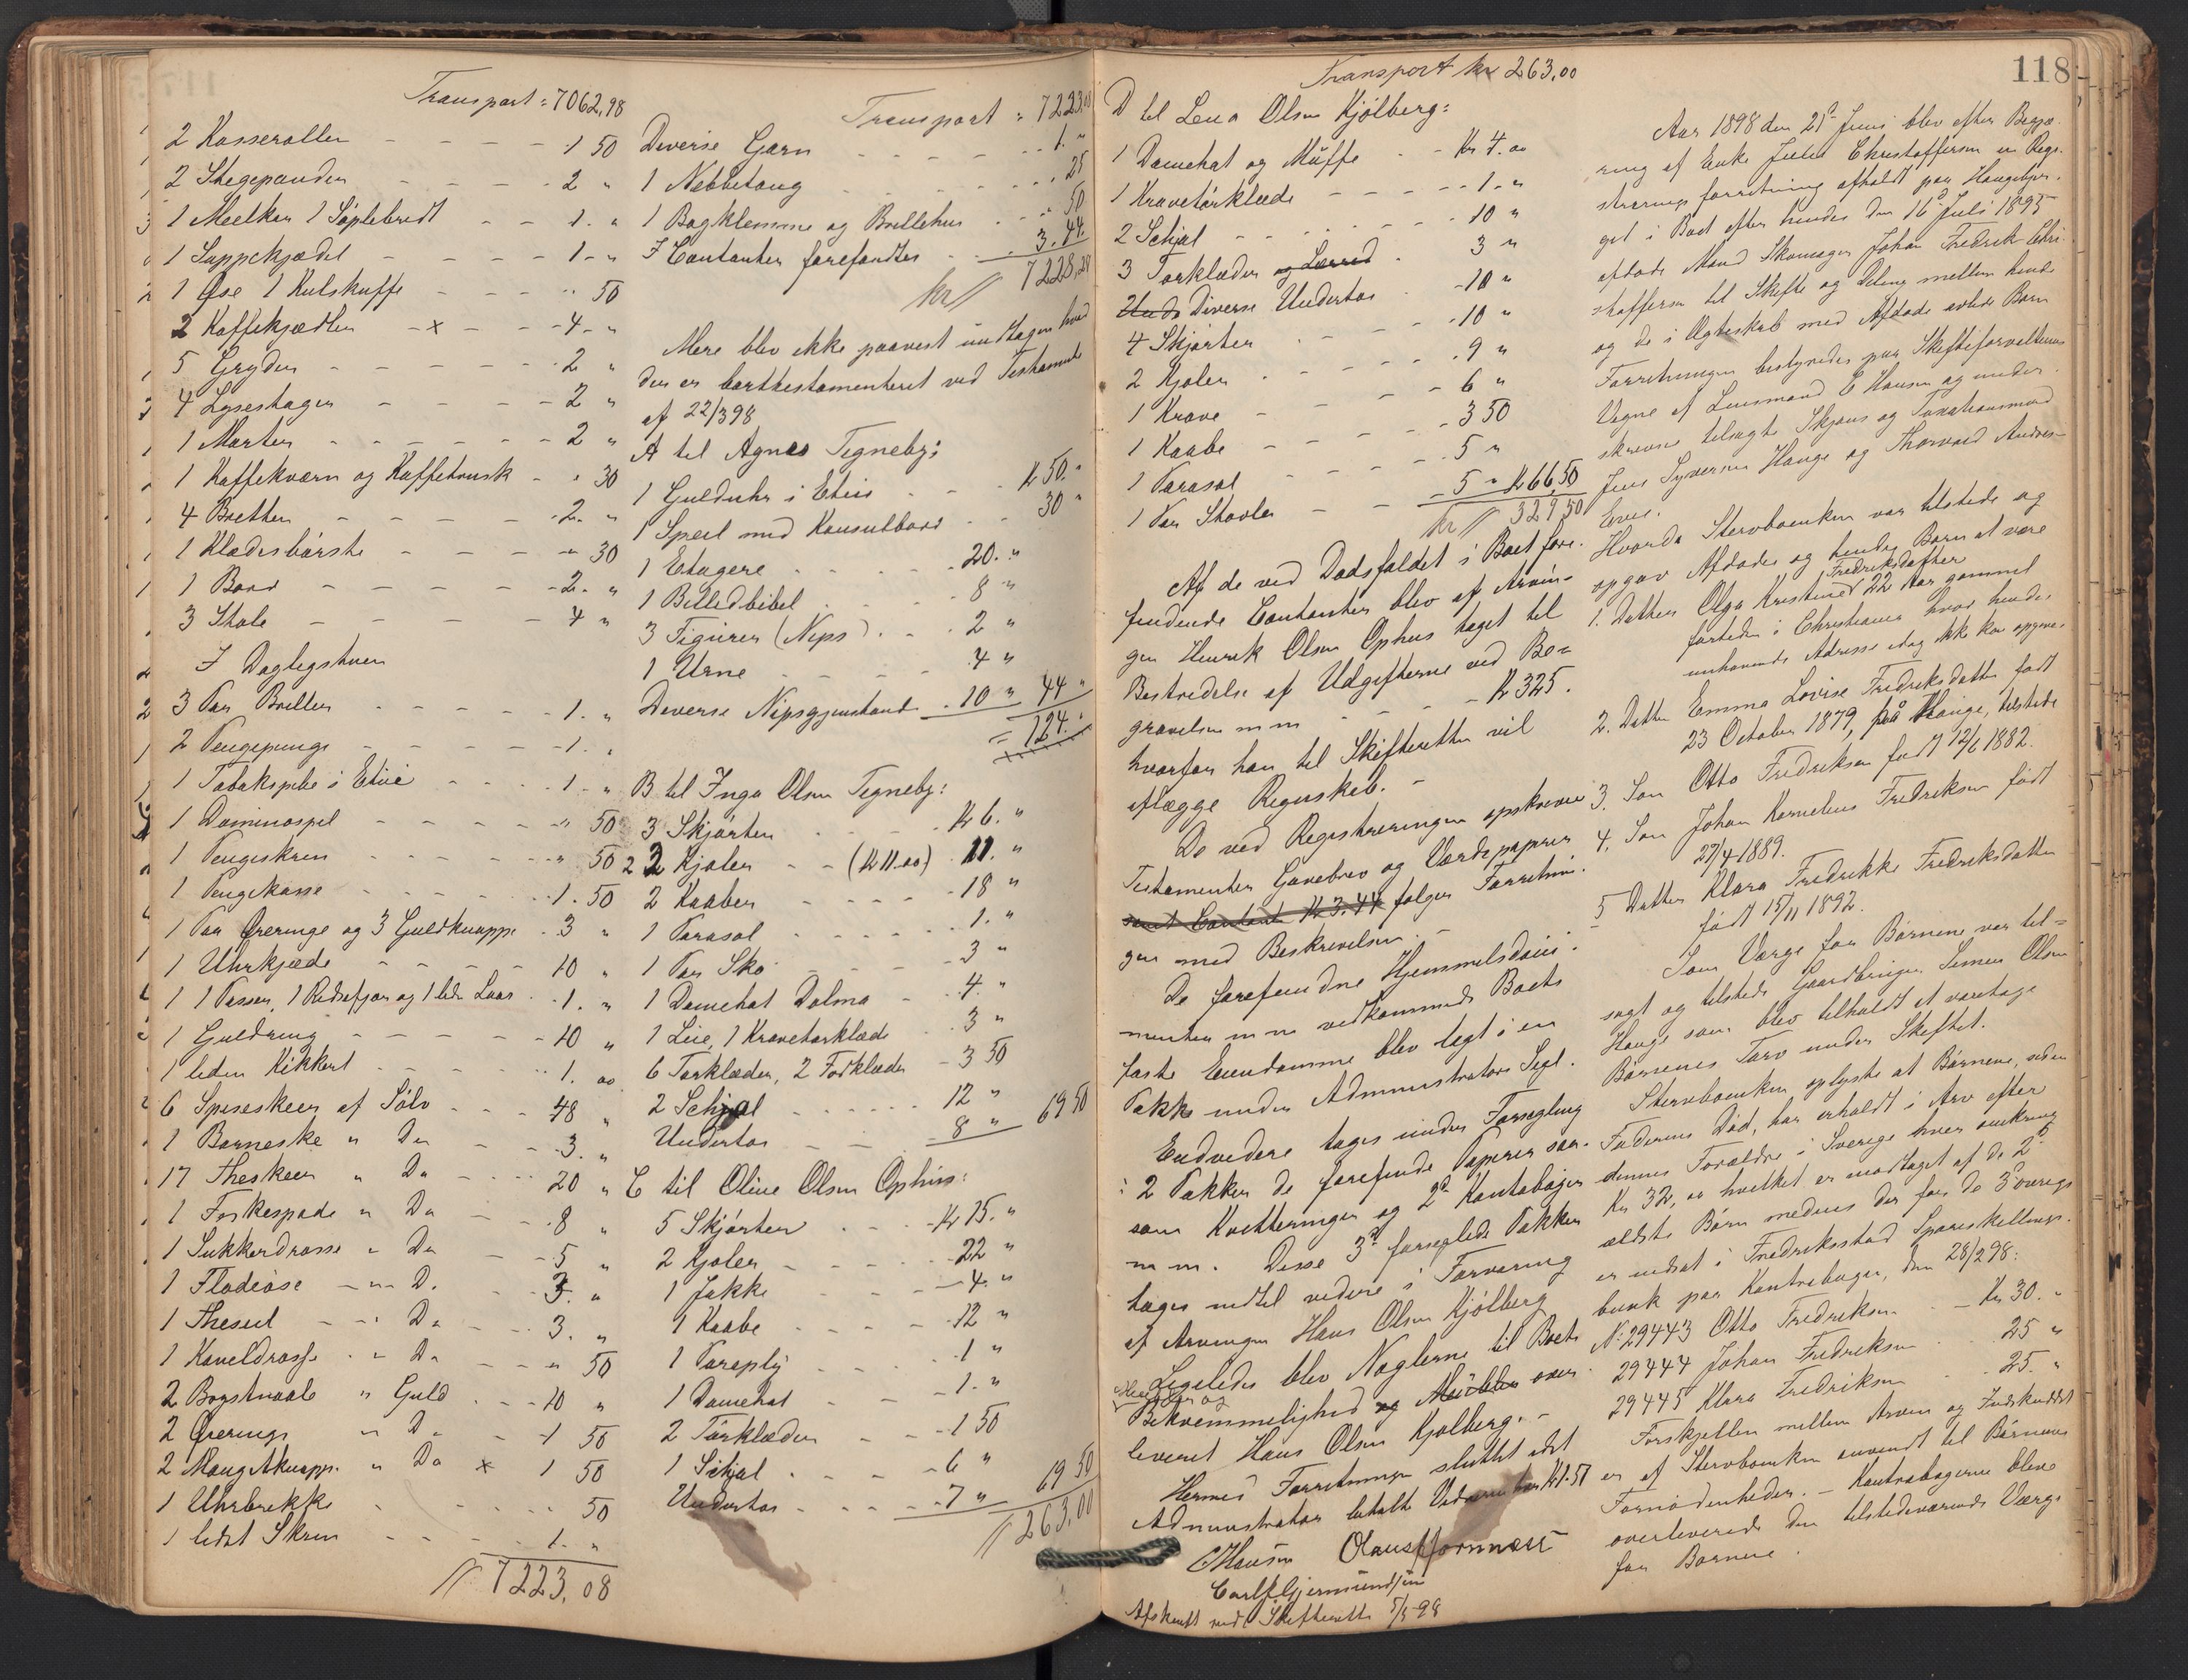 Transport: 7062,98
2 Kasseroller - - - - 1 50
2 Stegepander - - - - 2 "
1 Mælker 1 Söplebredt - - 1. "
1 Suppekjedel - - - - 1 - "
1 Øse 1 Kulskuffe - - - " 50
2 Kaffekjedler - x - - 4 - "
5 Gryder - - - - - 2 "
4 Lysestager - - - - 2 "
1 Morter - - - - - 2 "
1 Kaffekværn og Kaffetrusk - " 30
4 Bretter - - - - 2. "
1 Klædesbørste - - - - " 30
1 Bord - - - - - 2. "
3 Stole - - - - 4 "
I Dagligstuen
3 Par Briller - - - - 1. "
2 Pengepunge - - - - 1. "
1 Tobakspibe i Etúi - - - 1 - "
1 Dominospel - - - - " 50
1 Pengeskrin - - - - " 50
1 Pengekasse - - - - 1. 50
1 Par Øreringe og 3 Guldknappe - 3 "
1 Uhrkjæde - - - - 10 "
1 Passer, 1 Redsefjær og 1 lidn Laas - 1. "
1 Guldring - - - - 10 "
1 liden Kikkert - - - - 1. 00
6 Speseskeer af Sölv - - - 48 "
1 Barneske " Do - - 3. "
17 Theskeer " Do - - 20 "
1 Fiskespade " Do - - 8 "
1 Sukkerdraase " Do - - 5 "
1 Flødeøse - " - D. - - 3. "
1 Thesiel - - " Do - - 3. "
1 Kaneldraasse - " Do - - " 50
2 Brystnaale " Guld - - 10 "
2 Ørerings " Do - - 1 50
2 Mangetknapp. " Do x 1 50
1 Uhrbrekke - - - - 50
1 lidet Skrin - - - - 1. "
// 7223,08
Transport : 7223,08
Diverse Garn - - - - 1. "
1 Nebbetang - - - - . 25
1 Bogklemme og Brillehus - - " 50
I Contanter forefandtes - - 3.44.
kr // 7228,28
Mere blev ikke paavest undtagen hvad
der er borttestamenteret ved Testamente
af 22/3 98
A til Agnes Tegneby:
1 Guldúhr i Etúis - - - K 50. "
1 Speil med Konsulbord - - 30 "
1 Etagere - - - - 20. "
1 Billedbibel - - - - 8 "
3 Figúrer (Nips) - - 2 "
1 Urne - - - - 4 "
Diverse Nipsgjenstande - 10 " 44 "
= 124. "
B til Inga Olsen Tegneby:
3 Skjörter - - - - Kr 6. "
2 Kjoler - - (Kr 11.00) 11. "
2 Kaaber - - - - 18 "
1 Parasol - - - - 1. "
1 Par Sko - - - - 3 "
1 Damehat Dolma - - 4. "
1 Leie, 1 Kravetørklæde - 3 "
6 Tørklæder, 2 Forklæder - 3 50
2 Schjal - - - - 12 "
Undertøi - - - 8 " 69 50
C til Oline Olsen Ophús:
5 Skjörter - - - Kr 15. "
2 Kjoler - - - - 22 "
1 Jakke - - - - 4. "
1 Kaabe - - - - 12 "
1 Paraply - - - - 1 "
1 Damehat - - - 1. "
2 Törklæder - - 1 50
1 Schjal - - - - 6 "
Undertøi - - - - 7 " 69 50
// 263,00
118
Transport kr 263,00
D til Lena Olsen Kjølberg:
1 Damehat og Müffe - - Kr 4.00
1 Kravetörklæde - - - - 1. "
2 Schjal - - - - 10 "
3 Tørklæder og Lærred - 3 "
Und Diverse Undertøi - 10 "
4 Skjörter - - - - 10 "
2 Kjoler - - - - 9 "
1 Krave - - - - 6 "
1 Kaabe - - - - 3 50
1 Parasol - - - - 5 "
1 Par Støvler - - - 5 " Kr 66,50
kr // 329,50
Af de ved Dødsfaldet i Boet fore-
fundende Contanter blev af Arvin-
gen Henrik Olsen Ophus taget til
Bestridelse af Udgifterne ved Be-
gravelsen m m - - - Kr 325.
hvorfor han til Skifteretten vil
aflægge Regnskab. -
De ved Registreringen opskrevne
Testamenter Gavebrev og Værdipapirer
samt Contante Kr 3.44 følger Forretnin-
gen med Beskrivelsen. -
De forefundne Hjemmelsdocü-
menter m m vedkommende Boets
faste Eiendomme blev lagt i en
Pakke under Administrators Segl.
Endvidere toges ünder Forsegling
i 2 Pakker de forefunde Papirer saa-
som Kvitteringer og 2de Kontobøger
m m. Disse 3de forseglede Pakker
toges indtil videre i Forvaring
af Arvingen Hans Olsen Kjölberg
Ligeledes blev Nøglerne til Boets
Bekvemmelighed og Möbler over-
leveret Hans Olsen Kjølberg. -
Hermed Forretningen sluttet idet
Administrator betalte Vidnerne hver Kr 1.57
CHansen Olaus Hornnæss
Carl Hjermundsen
Afskrift indt Skifteretten 5/5-98
Aar 1898 den 21de Juni blev efter Begjæ-
ring af Enke Julie Christoffersen en Regi-
streringsforretning afholdt paa Haugebyen-
get i Boet efter hendes den 16de Juli 1895
afdøde Mand Skomager Johan Fredrik Chri-
stoffersen til Skifte og Deling mellem hende
og de i Ægteskab med Afdøde avlede Børn
Forretningen bestyredes paa Skifteforvalterens
Vegne af Lensmand C Hansen og under-
skrevne tilsagte Skjøns og Taxationsmænd
Jens Syversen Hauge og Thorvald Andres-
Evei.
Hvorda Stervboenken var tilstede og
opgav Afdødes og hendes Børn at være
Fredriksdatter
1. Datter Olga Kristine 22 Aar gammel
fortiden i Christiania hvor hendes
nuhavende Adresse idag ikke kan opgives
2. Datter Emma Lovise Fredriksdatter født
23 October 1879, på Hauge, tilstede
3. Søn Otto Fredriksen født 12/6 1882.
4. Søn Johan Kornelius Fredriksen født
27/4 1889.
5 Datter Klara Fredrikke Fredriksdatter
født 15/11 1892.
Som Værge for Børnene var til-
sagt og tilstede Gaardbruger Simen Olsen
Hauge som blev tilholdt at varetage
Børnenes Tarv under Skiftet.
Stervboenken oplyste at Børnene, siden
Faderens Død, har erholdt i Arv efter
dennes Forældre i Sverige hver omkring
Kr 32,00 hvilket er modtaget af de 2de
ældste Børn medens der for de 3de øvrige
er indsat i Fredriksstad Spareskillings-
bank paa Kontrabøger, den 28/2 98:
N: 29443 Otto Fredriksen - - Kr 30. "
29444 Johan Fredriksen - 25 "
29445 Klara Fredriksen - - 25. "
Forskjellen mellem Arven og Indskuddet
er af Stervboenken anvendt til Børnenes
Fornødenheder. - Kontrabøgerne bleve
overleverede den tilstedeværende Værge
for Børnene.